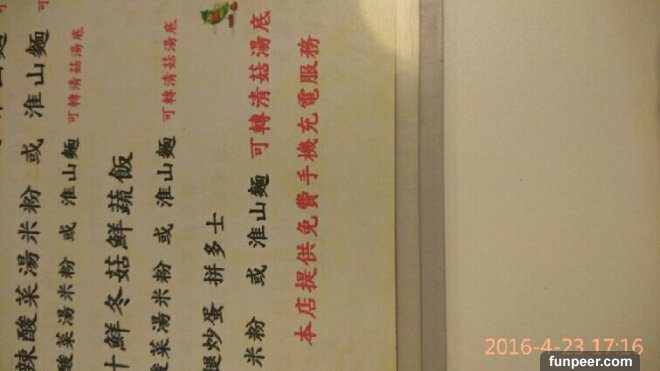 辣酸菜湯米粉 或 淮山麵 可
酸菜湯米粉 或 淮山麵 可轉清菇湯底
十鮮冬菇鮮蔬飯
酸菜湯米粉 或 淮山麵 可轉清菇湯底
炒蛋 拼多士
米粉 或 淮山麵 可轉清菇湯底
本店提供免費手機充電服務
2016-4-23 17:16
funpeer.com